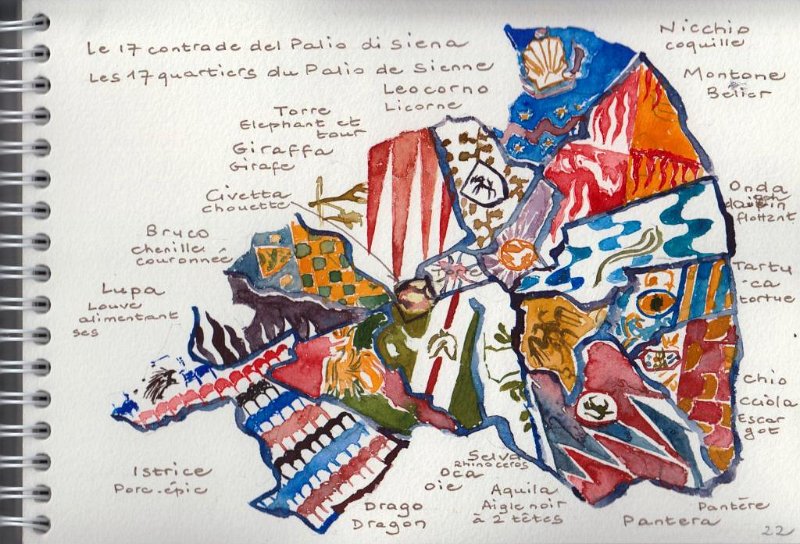 Le 17 contrade del Palio di Siena
Les 17 quartiers du Palio de Sienne
Nicchio
coquille
Montone
Bélier
Leocorno
Licorne
Torre
Elephant et
tour
Giraffa
Girafe
Civetta
chouette
Onda
flottant
Bruco
chenille
couronnée
Tartu
-ca
tortue
Lupa
Louve
alimentant
ses
Chio
cciola
Escar
got
Istrice
Porc-épic
Selva
rhinoceros
Oca
oie
Drago
Dragon
Aquila
Aigle noir
à 2 têtes
Pantère
Pantera
22